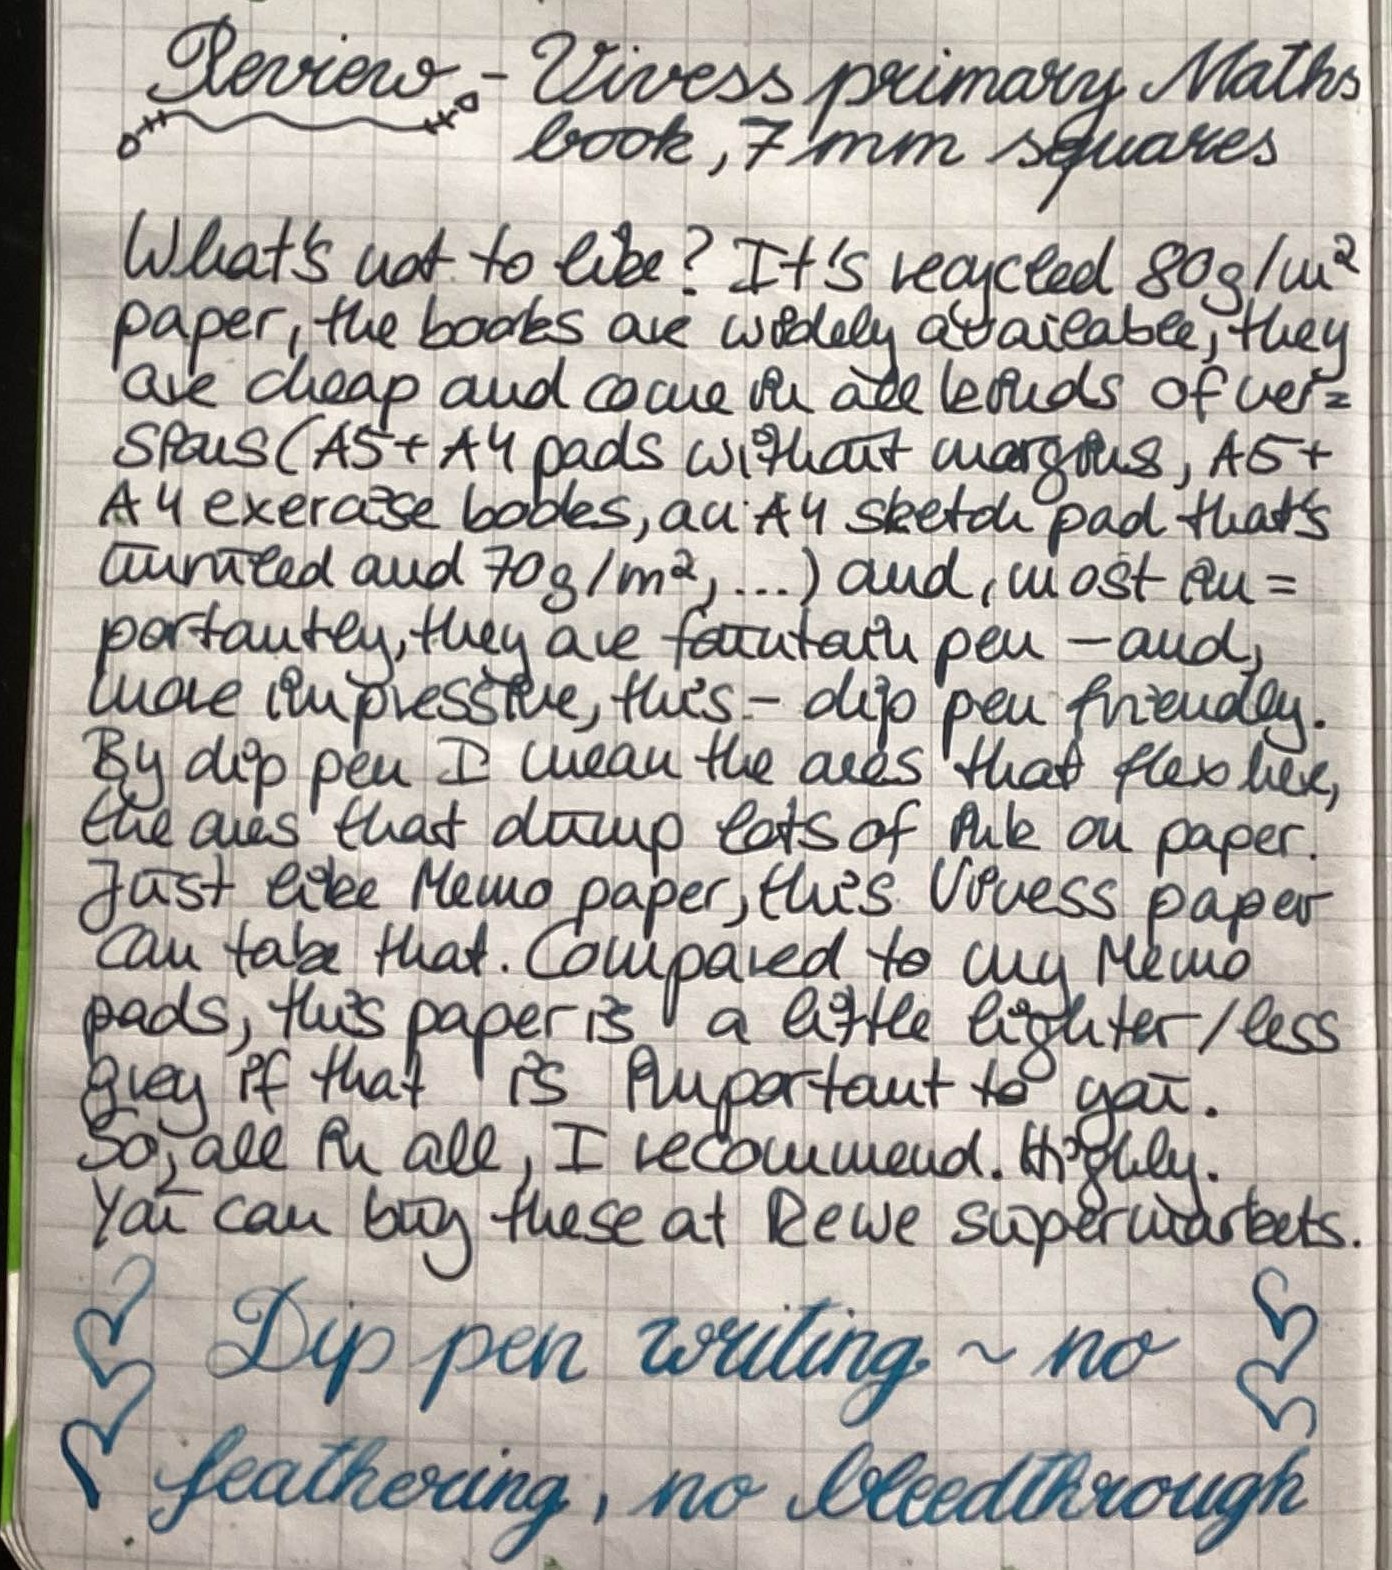 Review - Vivess primary Maths
book, 7 mm squares
What's not to like? It's recycled 80g/m²
paper, the books are widely available, they
are cheap and come in all kinds of ver=
sions (A5+A4 pads without margins, A5+
A4 exercise books, an A4 sketch pad that's
unruled and 70g/m², ...) and, most im=
portantly, they are fountain pen - and,
more impressive, this - dip pen friendly.
By dip pen I mean the ones that flex here,
the ones that dump lots of ink on paper.
Just like Memo paper, this Vivess paper
can take that. Compared to my Memo
pads, this paper is a little lighter/less
grey if that is important to you.
So, all in all, I recommend. Highly.
You can buy these at Rewe supermarkets.
Dip pen writing ~ no
feathering, no bleedthrough